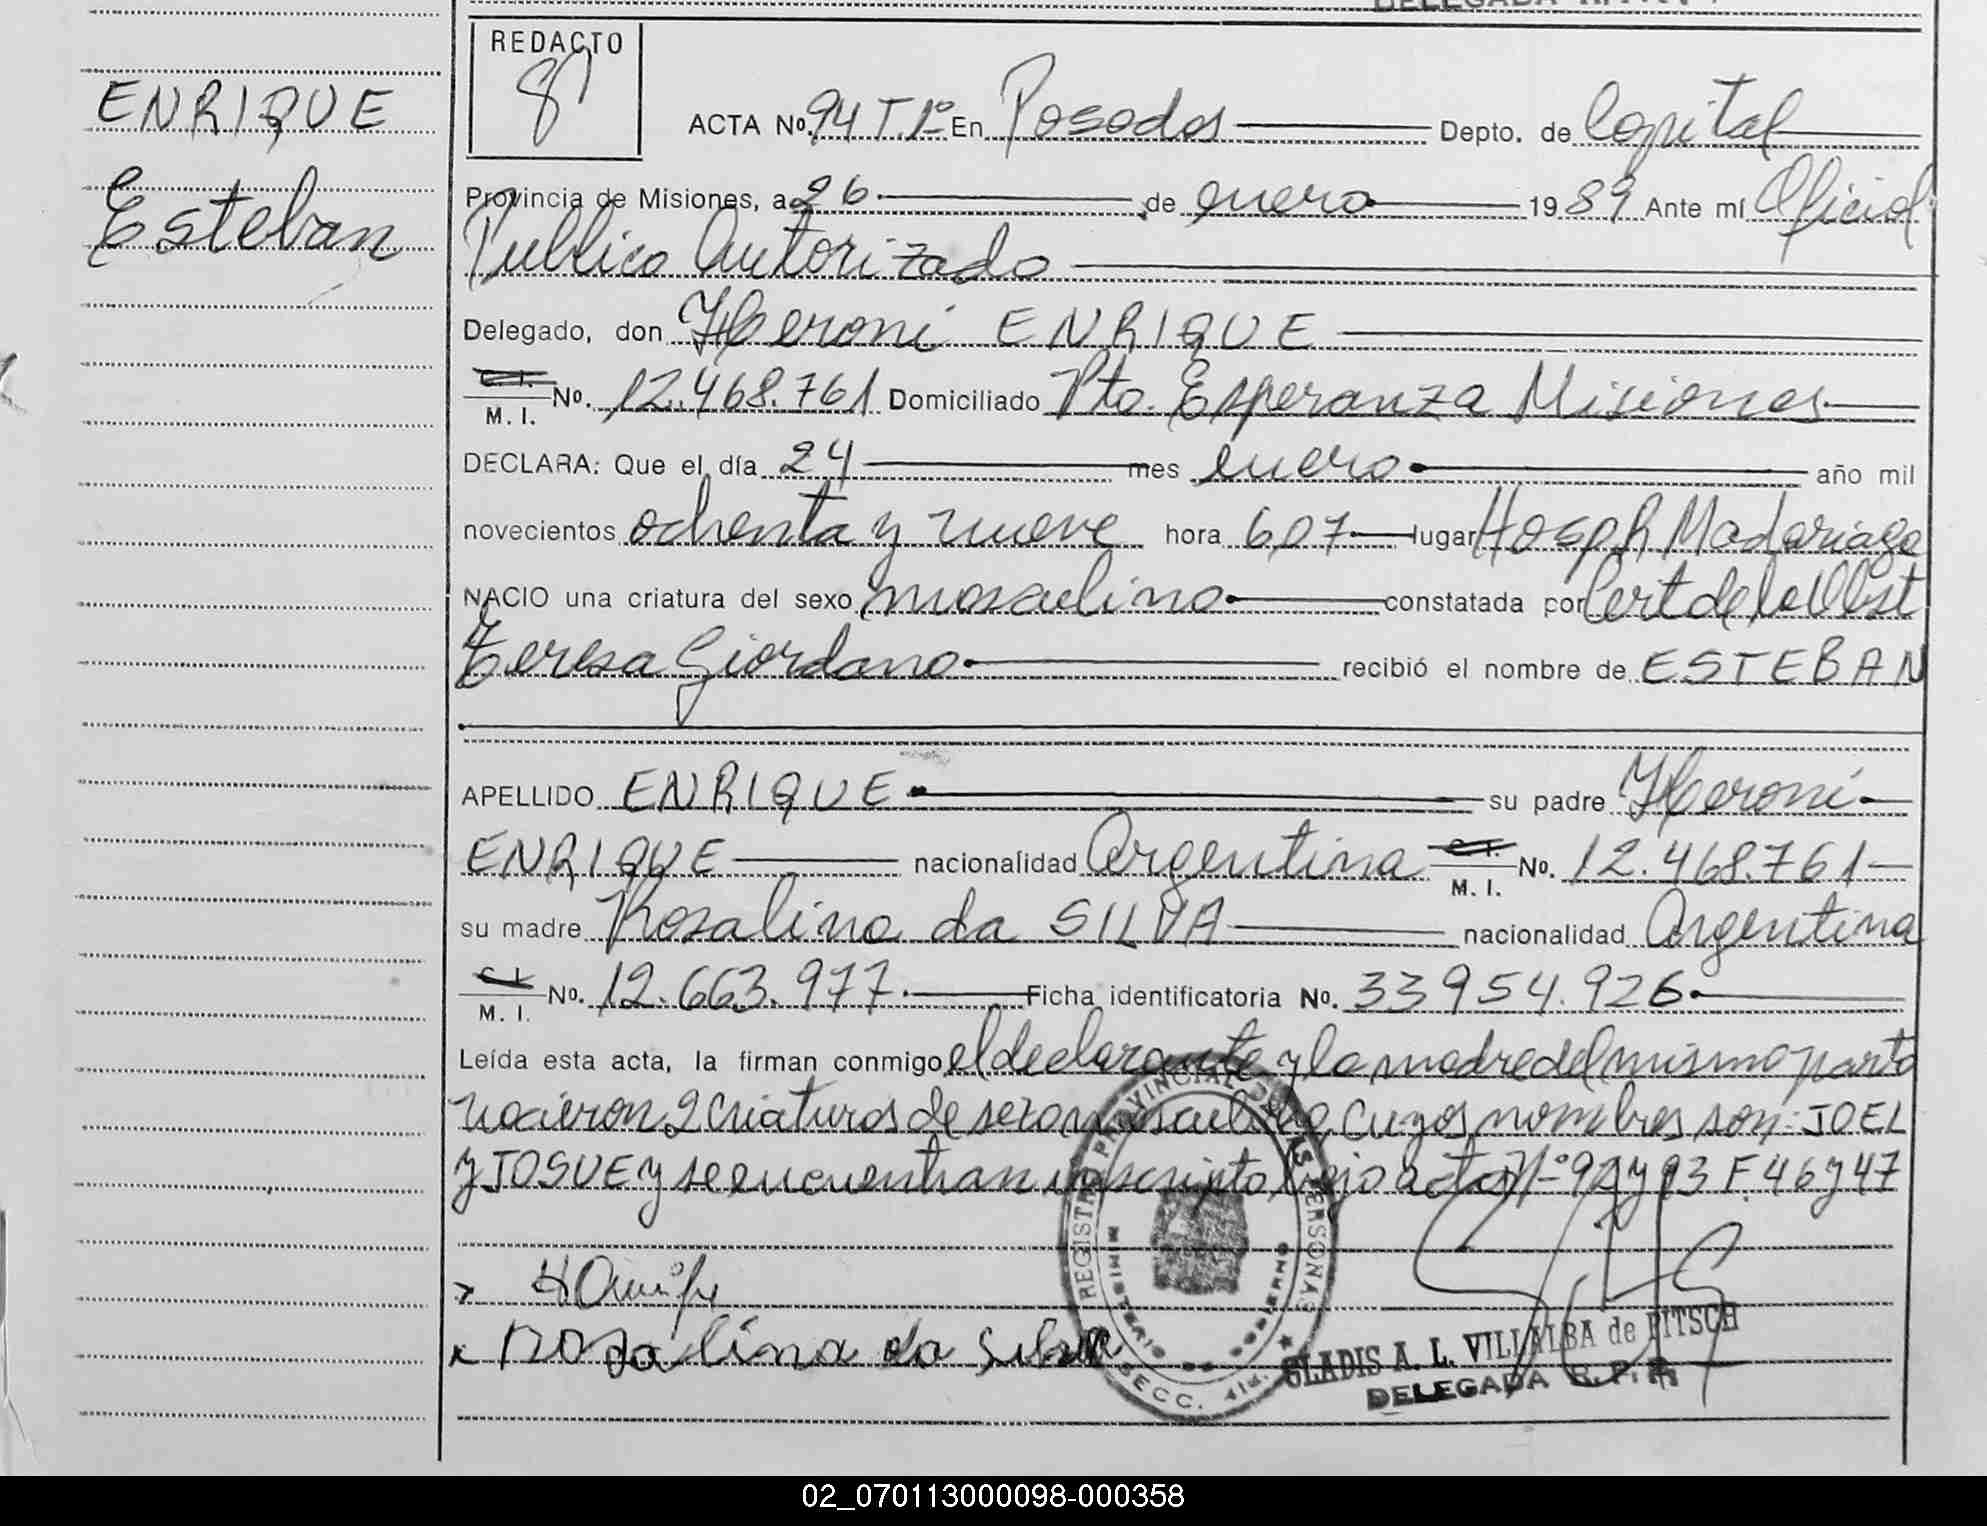 REDACTO
ENRIQUE
ACTA Nº. 94 T 1º En Posadas Depto. de Capital
Esteban
Provincia de Misiones, a 26 de enero 1989 Ante mí Oficial
Publico Autorizado
Delegado, don Heroni ENRIQUE
C. I. M. I. Nº. 12.468.761 Domiciliado Pto. Esperanza Misiones
DECLARA: Que el día 24 mes enero año mil
novecientos ochenta y nueve hora 607 lugar Hosp R Madariaga
NACIO una criatura del sexo masculino constatada por Cert de la Obst
Teresa Giordano recibió el nombre de ESTEBAN
APELLIDO ENRIQUE su padre Heroni
ENRIQUE nacionalidad Argentina C. I. M. I. Nº. 12.468.761
su madre Rosalina da SILVA nacionalidad Argentina
C. I. M. I. Nº. 12.663.977 Ficha identificatoria Nº. 33954.926
Leída esta acta, la firman conmigo el declarante y la madre del mismo parto
nacieron 2 criaturas de sexo masculino, cuyos nombres son: JOEL
y JOSUE y se encuentran inscripto bajo acta Nº 92 y 93 F. 46 y 47
Rosalina da Silva
REGISTRO PROVINCIAL DE LAS PERSONAS
MINISTERIO DE GOBIERNO
SECC. 4ta.
GLADIS A. L. VILLALBA de PITSCH
DELEGADA R. P. P.
02_070113000098-000358